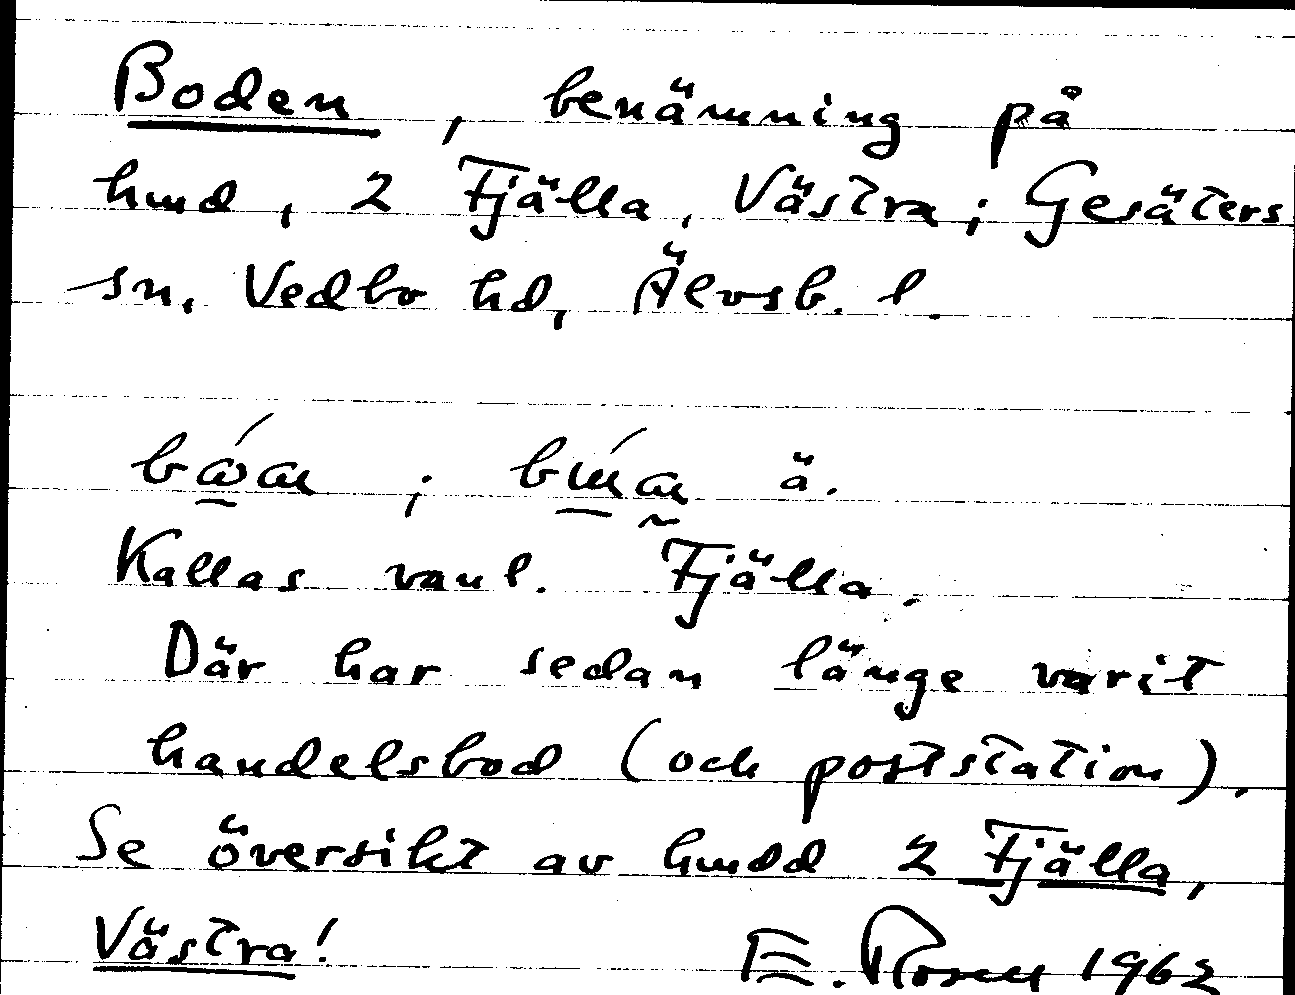 Boden, benämning på
hmd, 2 Fjälla, Västra; Gesäters
sn, Vedbo hd, Älvsb. l.
ä.
Kallas vanl. Fjälla.
Där har sedan länge varit
handelsbod (och poststation).
Se översikt av hmdd 2 Fjälla,
Västra! E. Rosen 1962